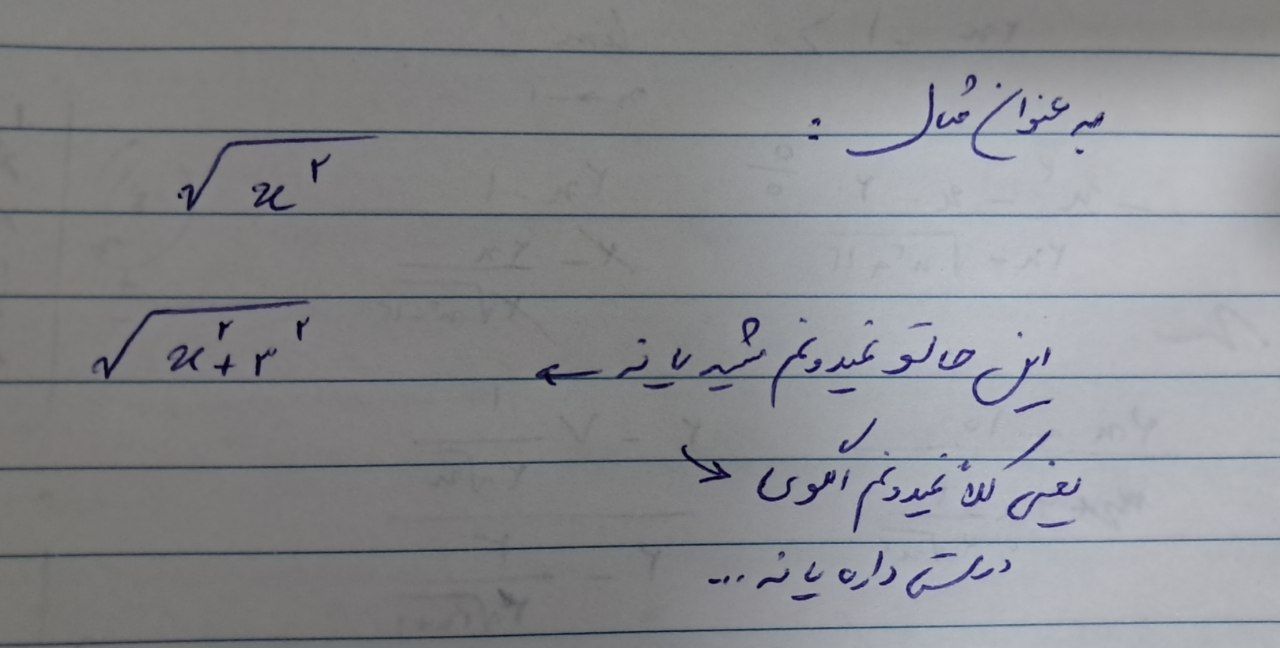 به عنوان مثال :
√x²
این حالتو نمیدونم میشه یا نه ← √x²+۲²
یعنی کلاً نمیدونم الگوی
درستی داره یا نه ...